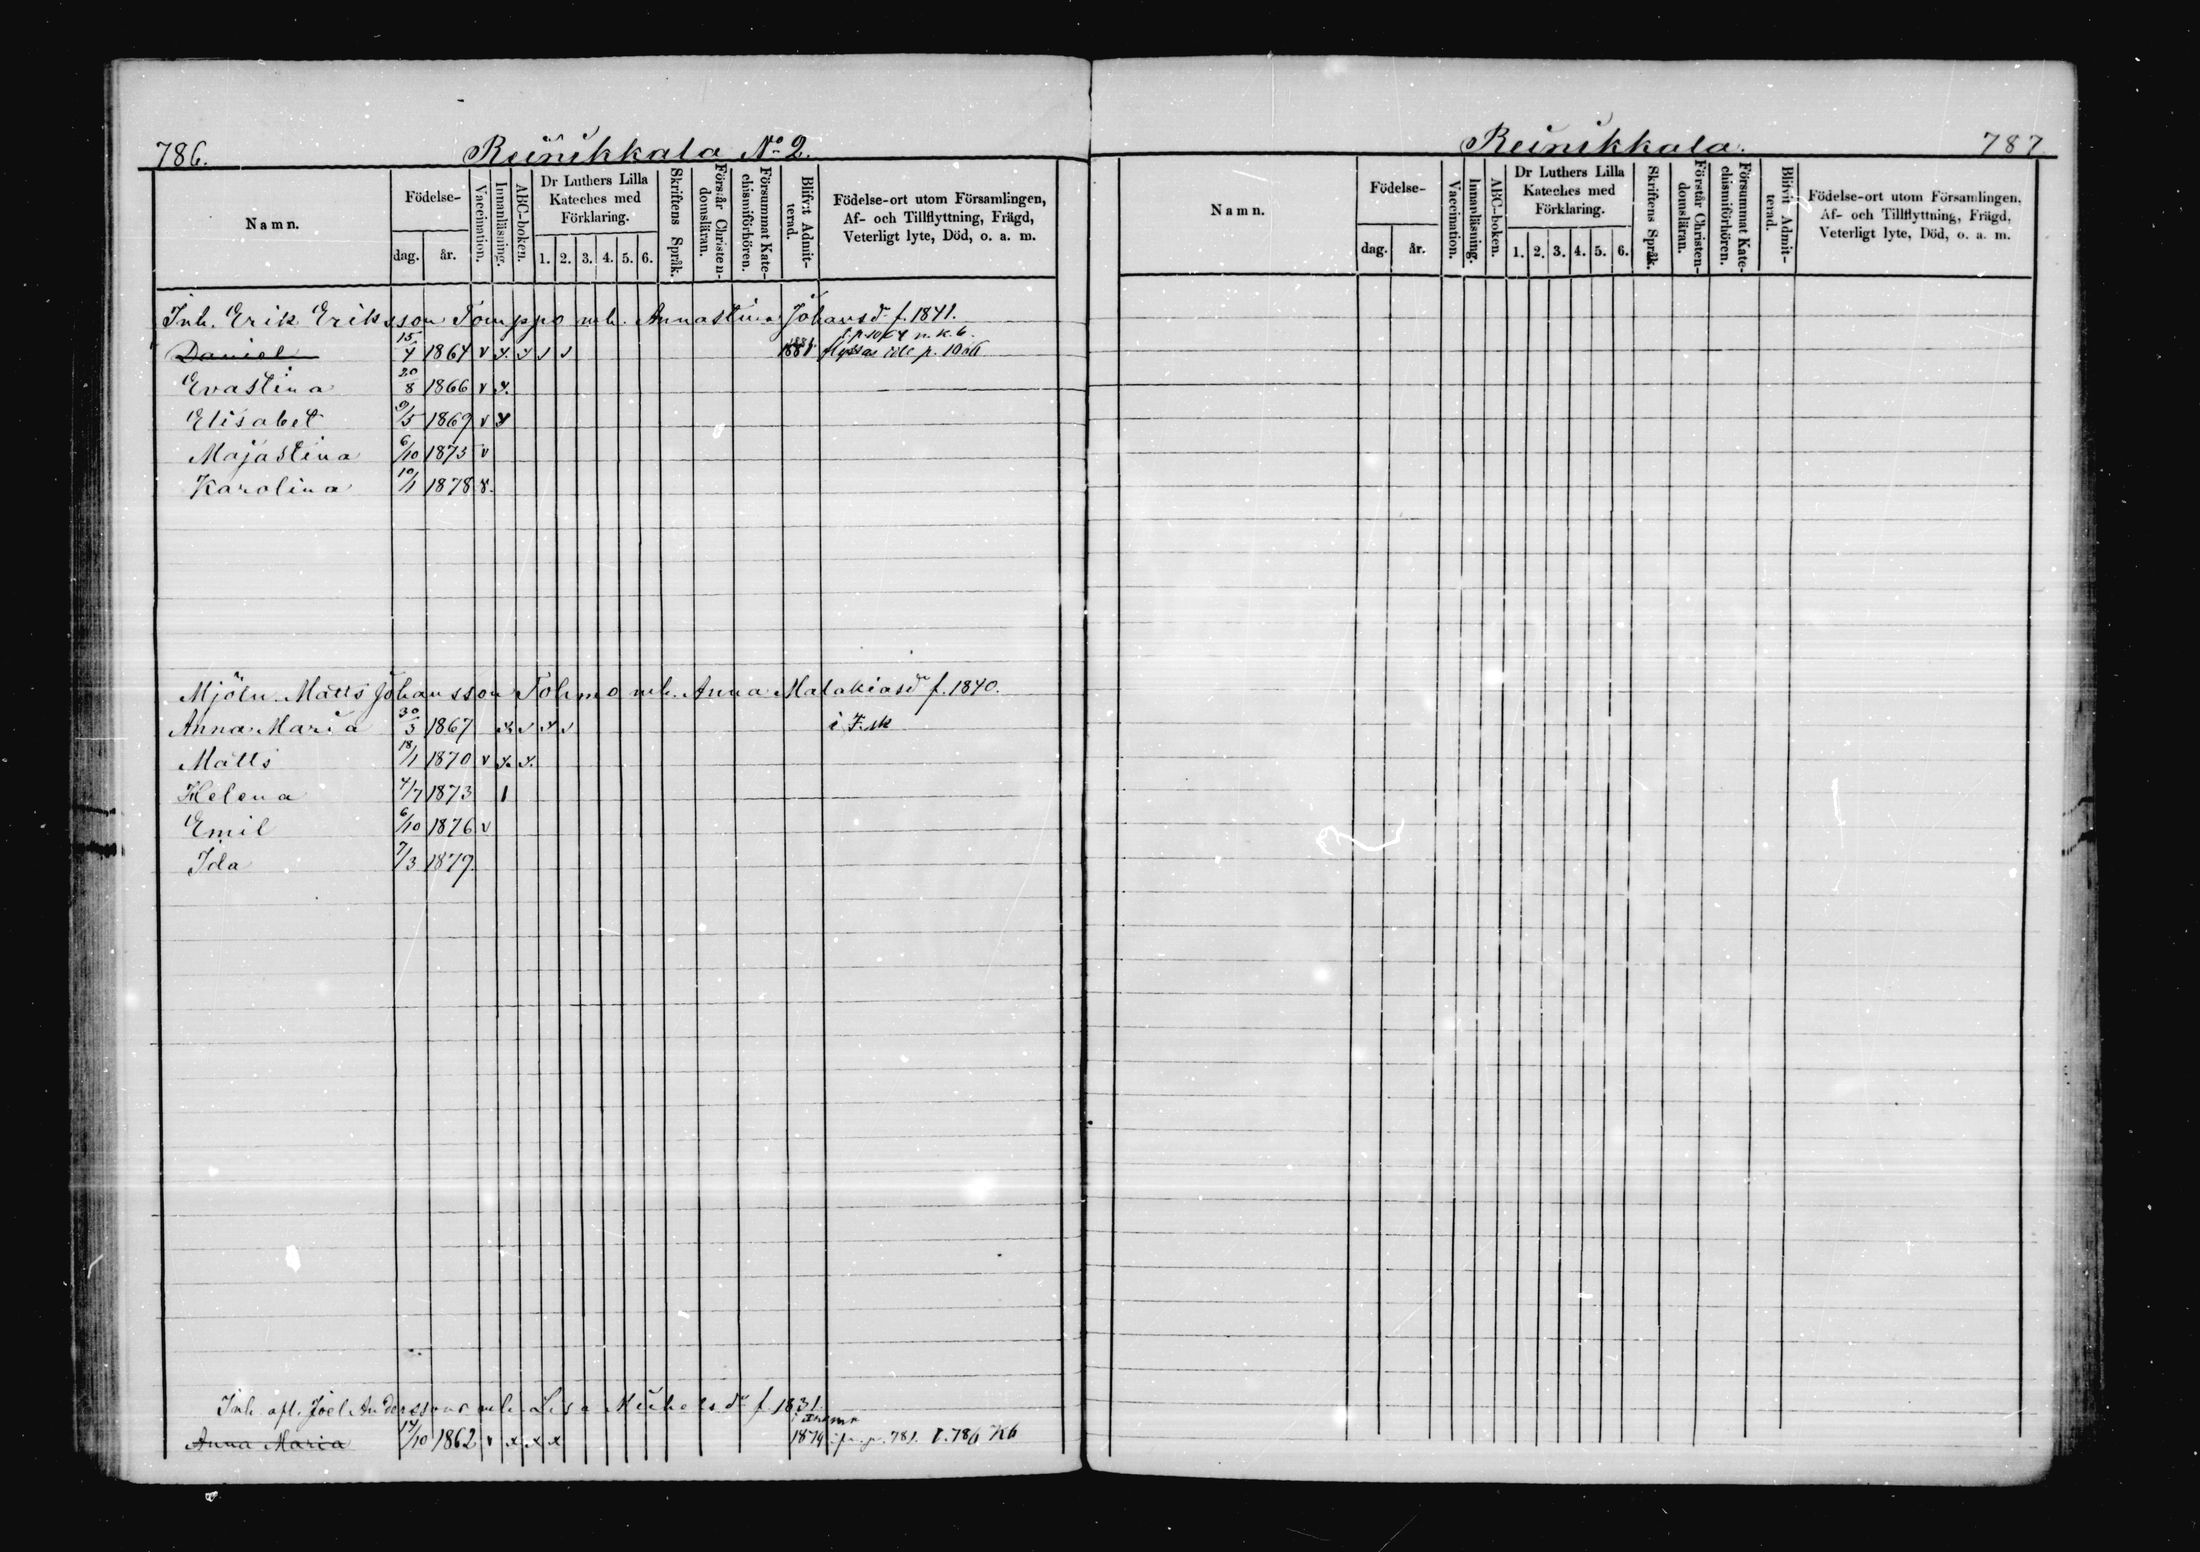 786. Reinikkala No 2.
Namn. Födelse- dag. år. Vaccination. Innanläsning. ABC-boken. Dr Luthers Lilla Kateches med Förklaring. 1. 2. 3. 4. 5. 6. Skriftens Språk. Förstår Christendomsläran. Försummat Katechismiförhören. Blifv:t Admitterad. Födelse-ort utom Församlingen, Af- och Tillflyttning, Frägd, Veterligt lyte, Död, o. a. m.
Inh. Erik Eriksson Tomppo mh. Annastina Johansdr f. 1841.
Daniel 15/4 1864 v x. x v v 1881 flyttas till p. 1066
Evastina 20/8 1866 v x.
Elisabet 9/5 1869 v x
Majastina 6/10 1873 v
Karolina 10/1 1878 v.
Mjöln. Matts Johansson Tohmo mh. Anna Malakiasdr f. 1840.
Anna Maria 30/3 1867 x v x v i F.sk
Matts 18/1 1870 v x. x.
Helena 4/7 1873 1
Emil 6/10 1876 v
Ida 7/3 1879.
Inh. afl. Joel Anderssons enk. Lisa Michelsdr f. 1831.
Anna Maria 17/10 1862 v x x x 1879 p. 781. 786 Kb
Reinikkala. 787
Namn. Födelse- dag. år. Vaccination. Innanläsning. ABC-boken. Dr Luthers Lilla Kateches med Förklaring. 1. 2. 3. 4. 5. 6. Skriftens Språk. Förstår Christendomsläran. Försummat Katechismiförhören. Blifvit Admitterad. Födelse-ort utom Församlingen, Af- och Tillflyttning, Frägd, Veterligt lyte, Död, o. a. m.